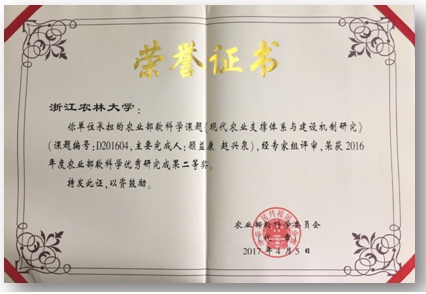 荣誉证书
浙江农林大学：
你单位承担的农业部软科学课题《现代农业支撑体系与建设机制研究》
（课题编号：D201604，主要完成人：顾益康 赵兴泉），经专家组评审，荣获2016
年度农业部软科学优秀研究成果二等奖。
特发此证，以资鼓励。
农业部软科学委员会
2017年4月5日